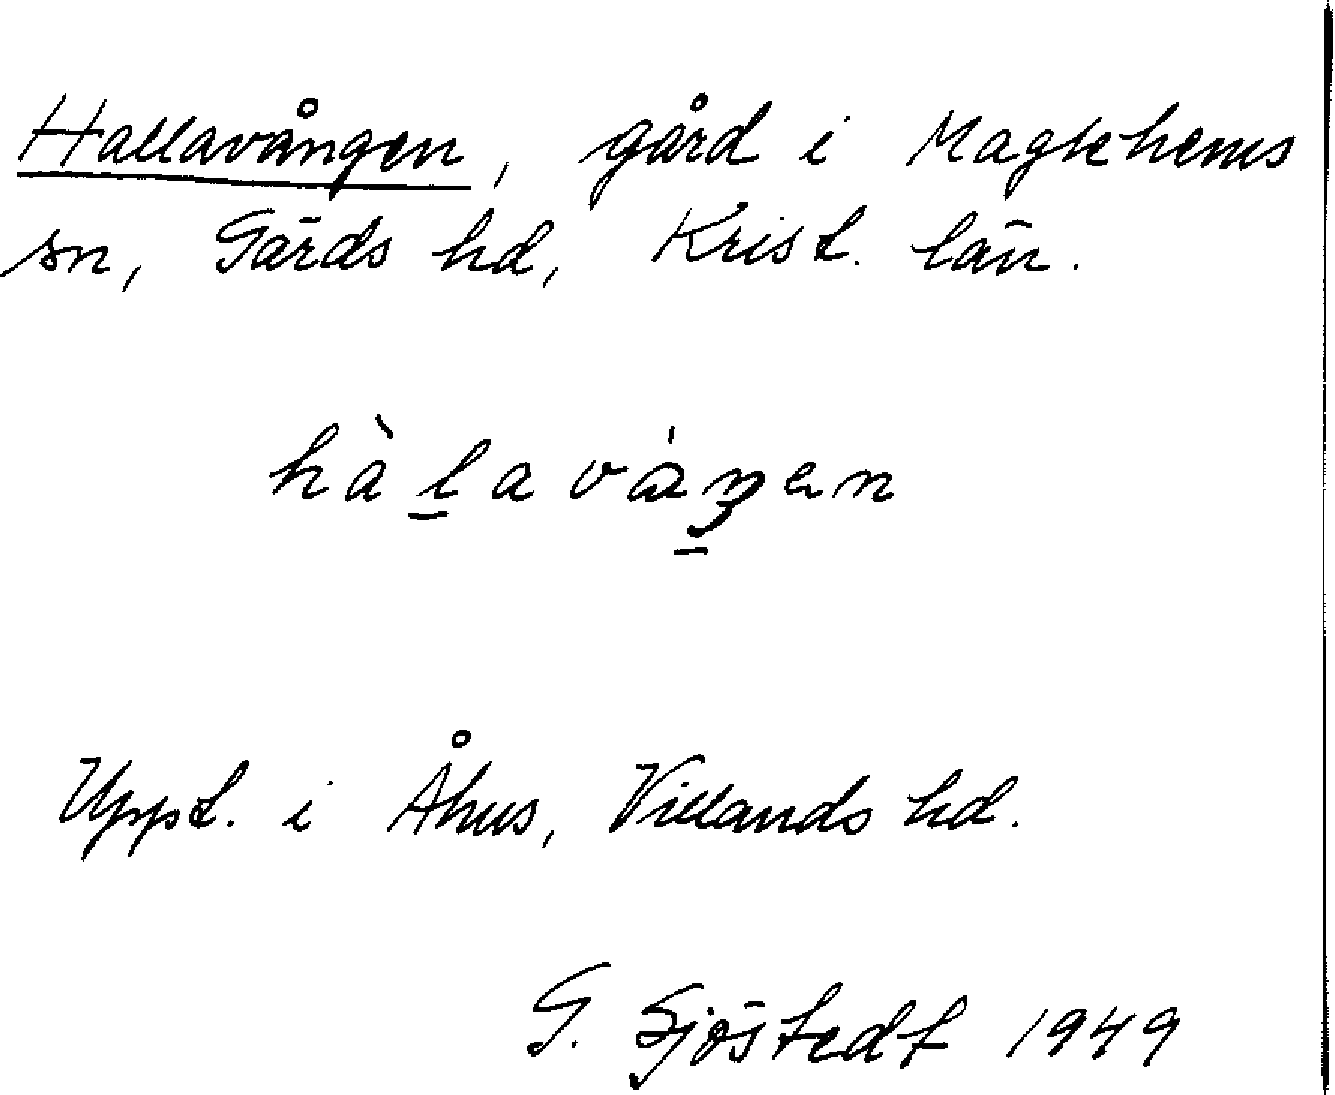 Hallavången, gård i Maglehems
sn, Gärds hd, Krist. län.
hàl̲aváŋ̲en
Uppt. i Åhus, Villands hd.
G. Sjöstedt 1949